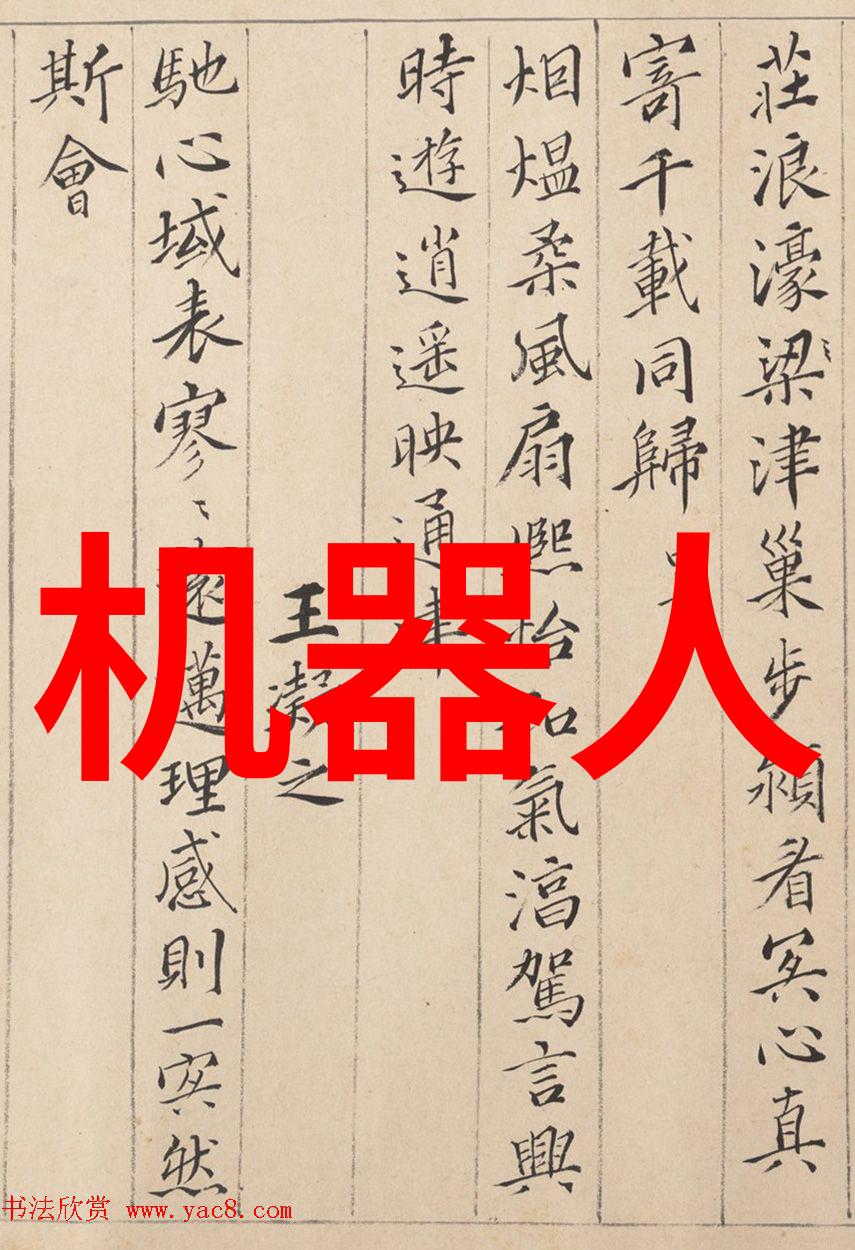 莊浪濠梁津巢步潁看冥心真
寄千載同歸
烟煴柔風扇熙怡和氣淳駕言興
時遊逍遥映通津
王凝之
馳心域表寥〻遠邁理感則一冥然
斯會
机器人
书法欣赏 www.yac8.com